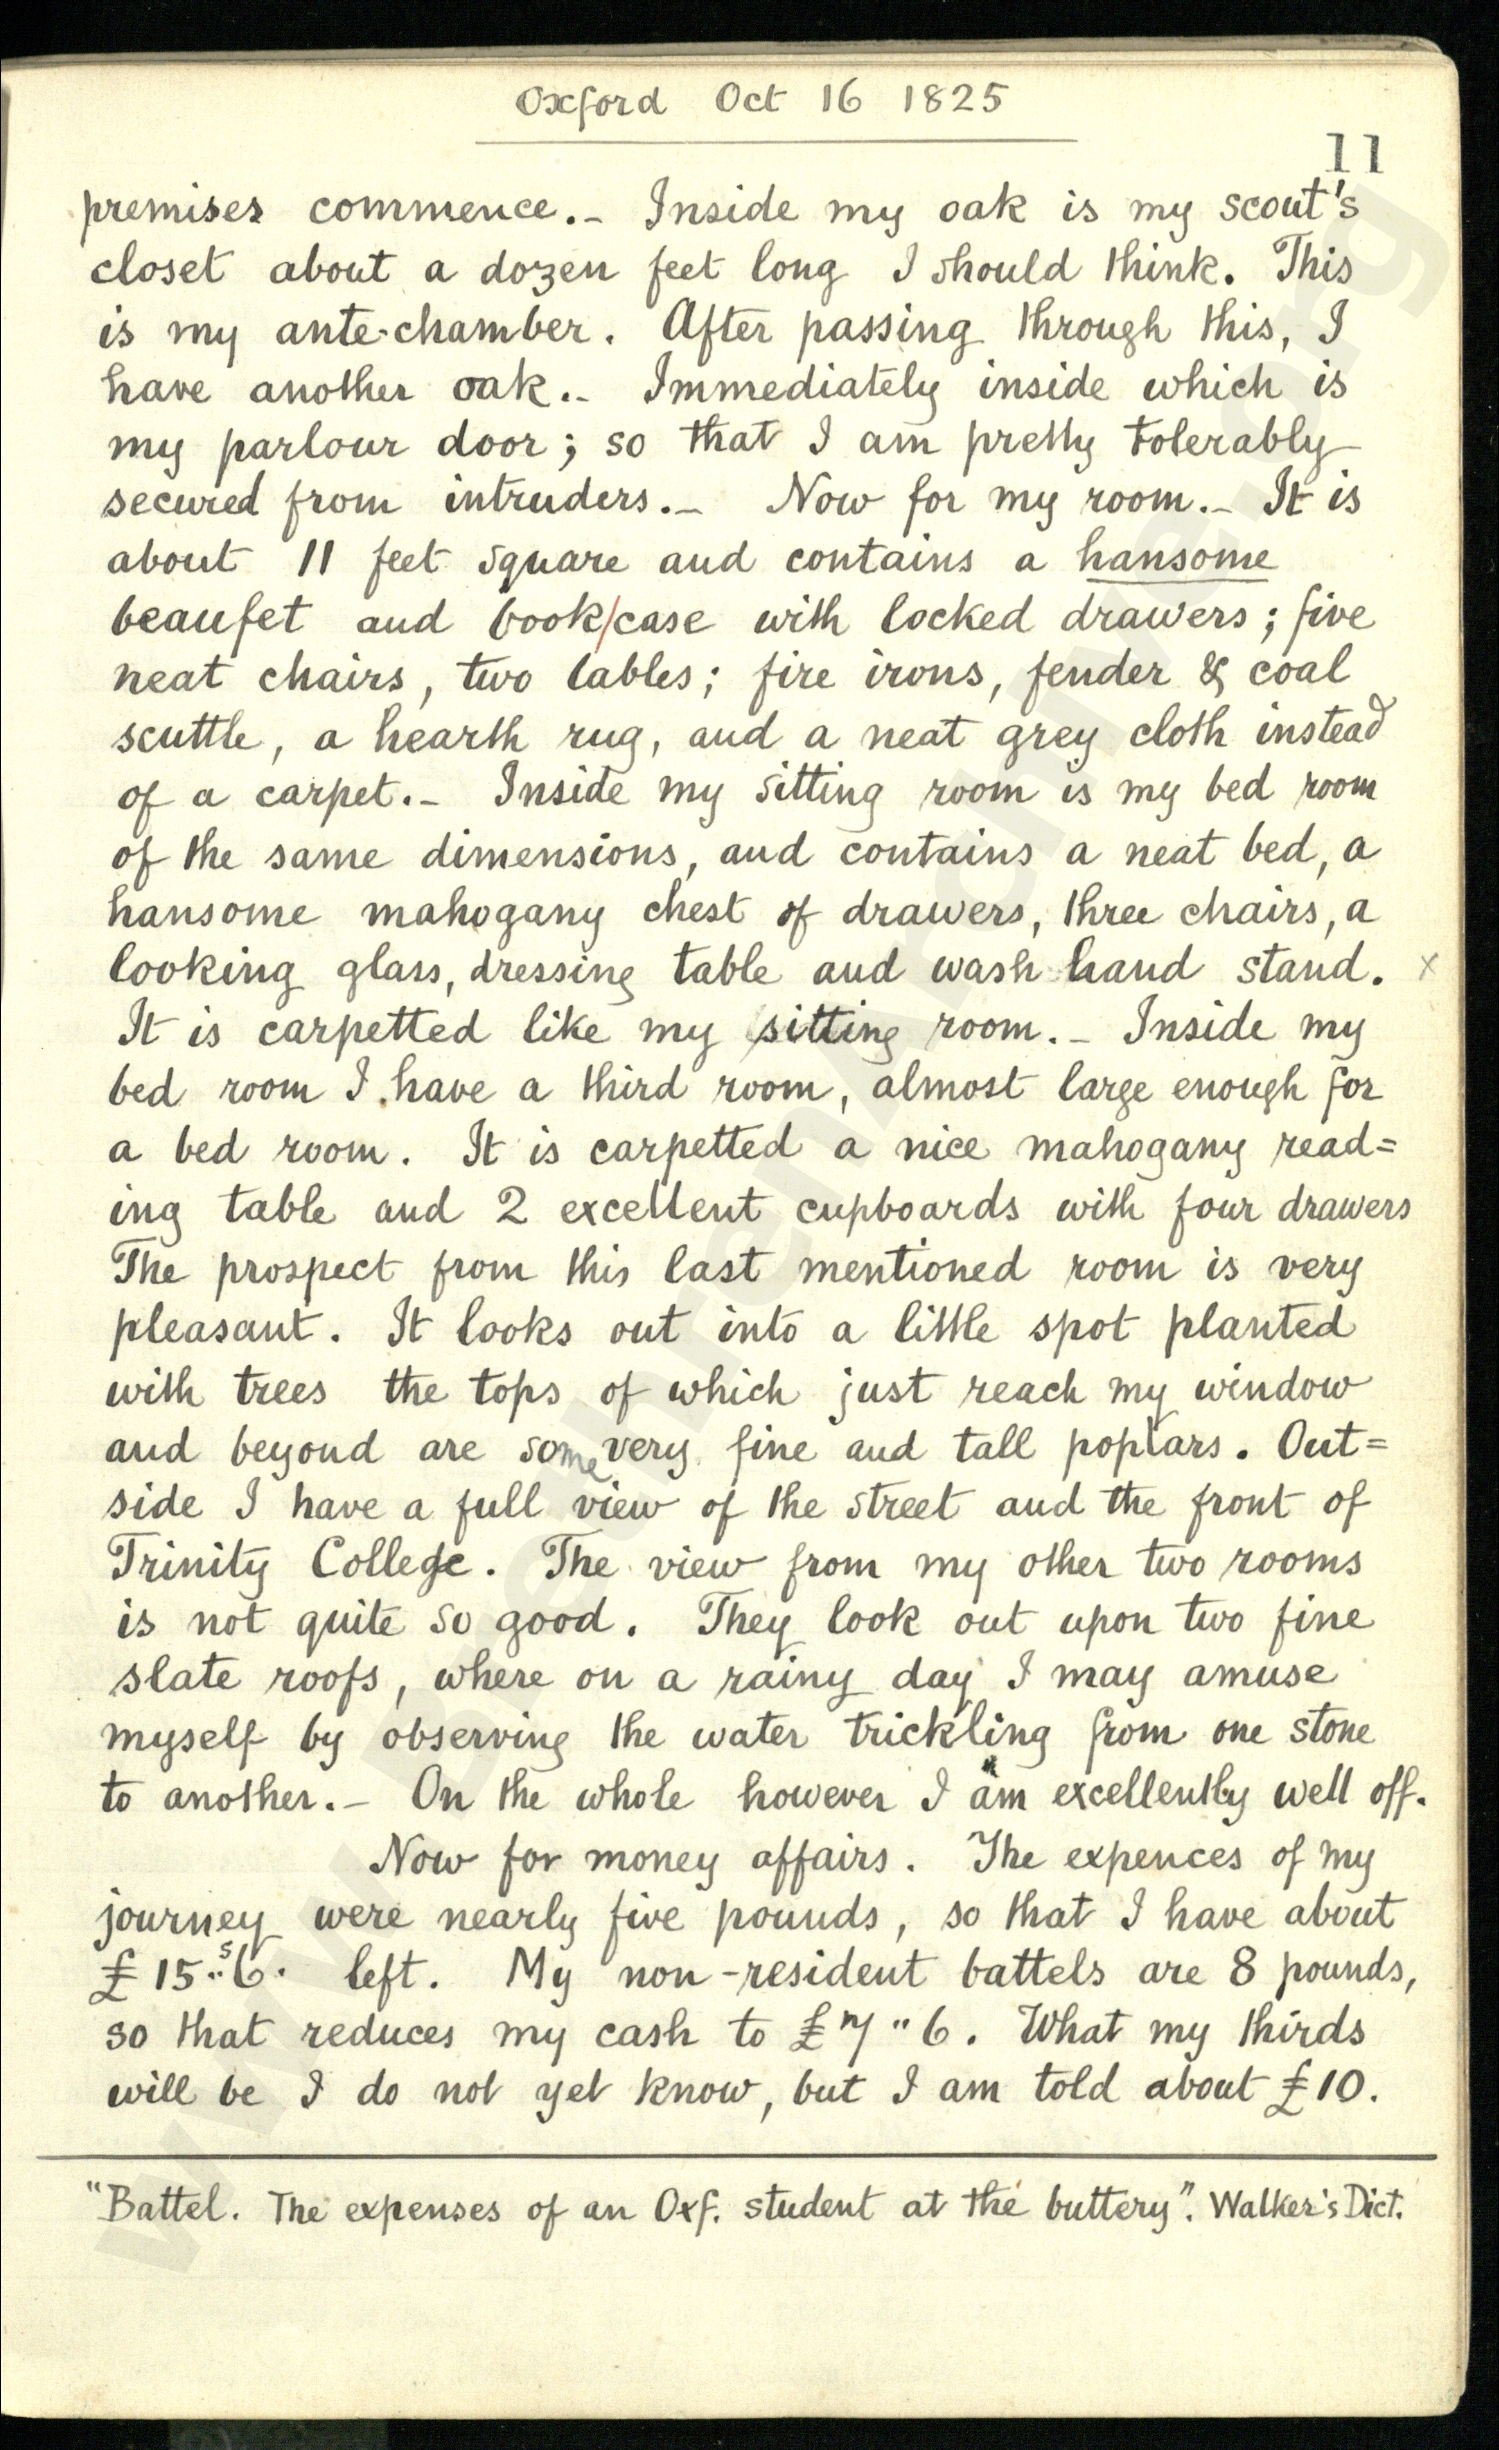 Oxford Oct 16 1825
11
premises commence.- Inside my oak is my scout's
closet about a dozen feet long I should think. This
is my ante-chamber. After passing through this, I
have another oak.- Immediately inside which is
my parlour door; so that I am pretty tolerably
secured from intruders.- Now for my room.- It is
about 11 feet square and contains a hansome
beaufet and book/case with locked drawers; five
neat chairs, two tables; fire irons, fender & coal
scuttle, a hearth rug, and a neat grey cloth instead
of a carpet.- Inside my sitting room is my bed room
of the same dimensions, and contains a neat bed, a
hansome mahogany chest of drawers, three chairs, a
looking glass, dressing table and wash hand stand. x
It is carpetted like my sitting room.- Inside my
bed room I have a third room, almost large enough for
a bed room. It is carpetted a nice mahogany read=
ing table and 2 excellent cupboards with four drawers
The prospect from this last mentioned room is very
pleasant. It looks out into a little spot planted
with trees the tops of which just reach my window
and beyond are some very fine and tall poplars. Out=
side I have a full view of the street and the front of
Trinity College. The view from my other two rooms
is not quite so good. They look out upon two fine
slate roofs, where on a rainy day I may amuse
myself by observing the water trickling from one stone
to another.- On the whole however I am excellently well off.
Now for money affairs. The expences of my
journey were nearly five pounds, so that I have about
£15..6s. left. My non-resident battels are 8 pounds,
so that reduces my cash to £7"6. What my thirds
will be I do not yet know, but I am told about £10.
"Battel. The expenses of an Oxf. student at the buttery". Walker's Dict.